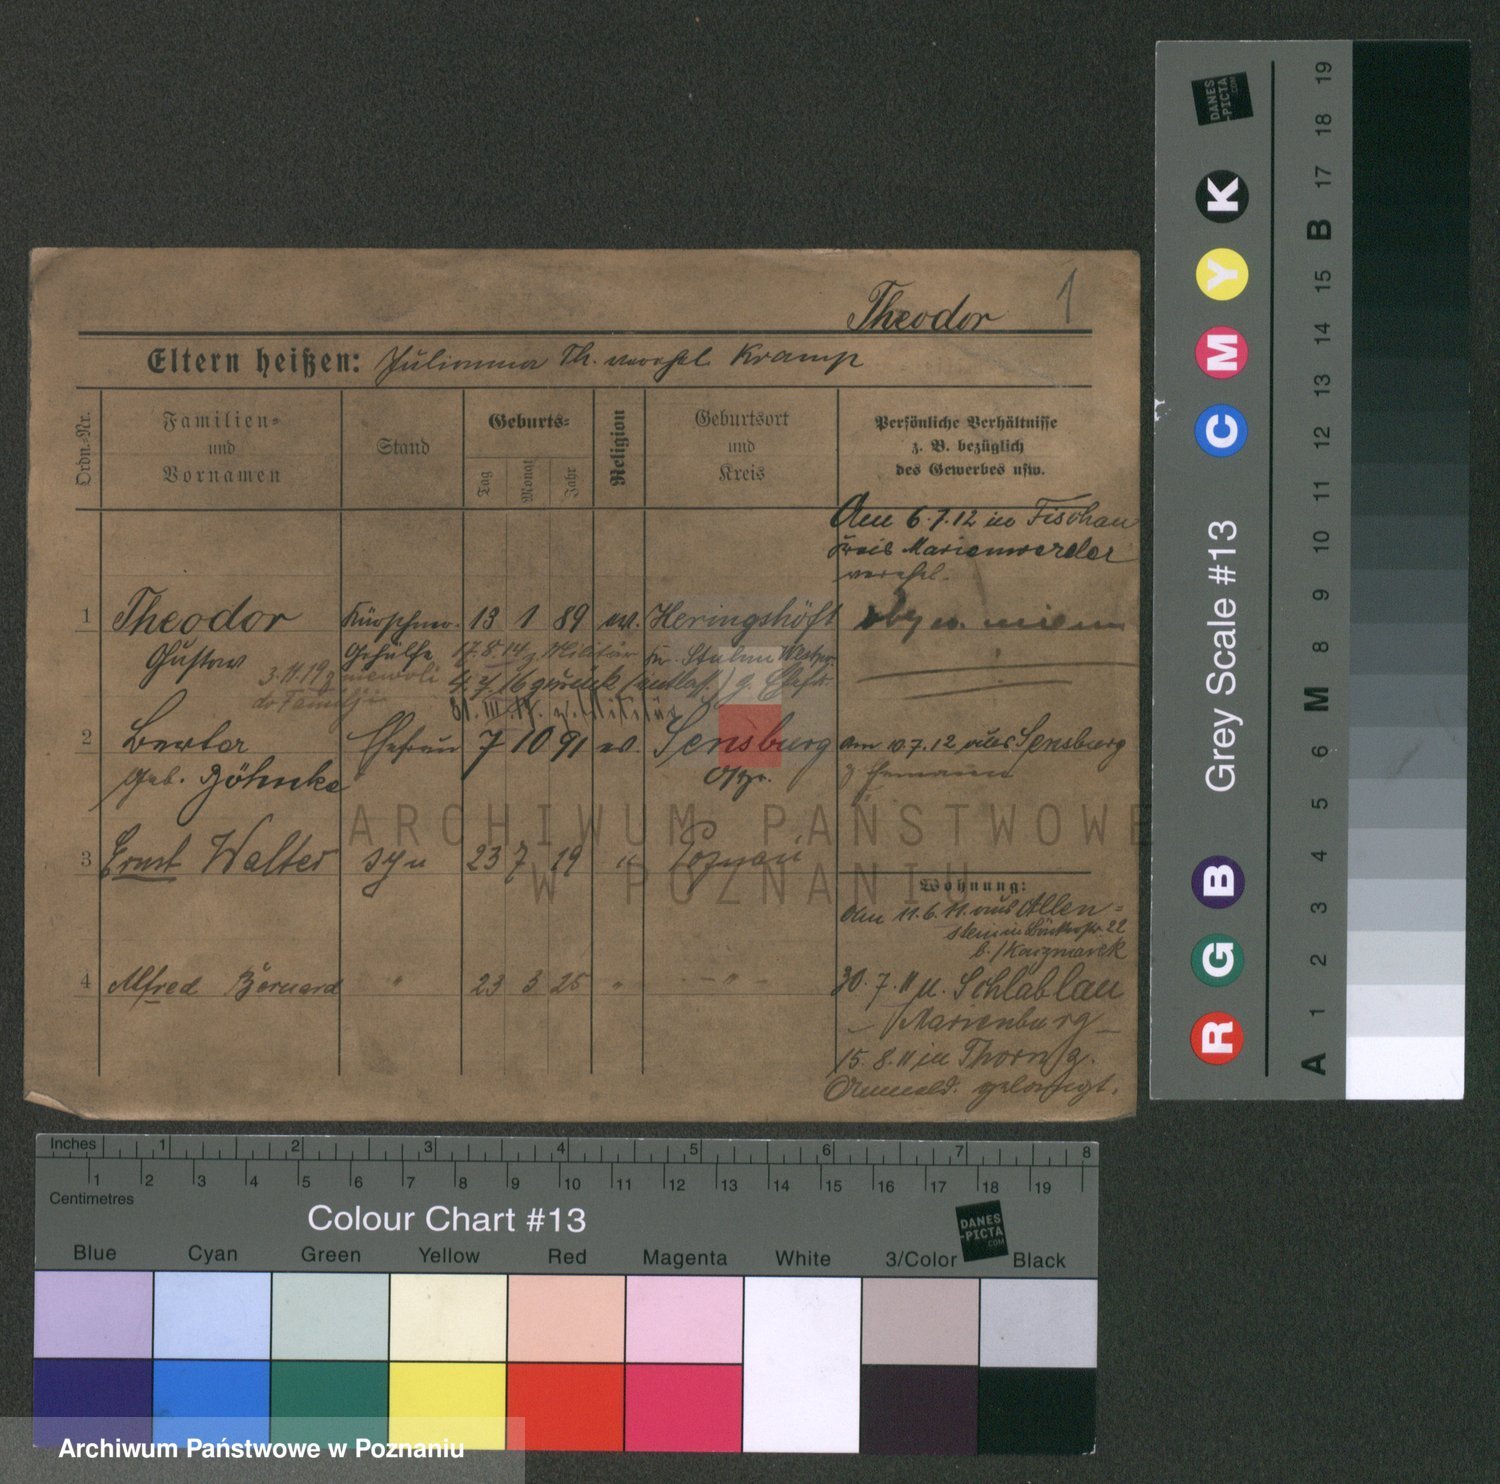 Theodor
1
Eltern heißen: Julianna Th. verehl. Kramp
Ordn.-Nr.
Familien-
und
Vornamen
Stand
Geburts-
Tag
Monat
Jahr
Religion
Geburtsort
und
Kreis
Persönliche Verhältnisse
z. B. bezüglich
des Gewerbes usw.
Am 6.7.12 in Fischau
Kreis Marienwerder
verehl.
1 Theodor Kürschner- 13 1 89 ev. Heringshöft
Gustav Gehülfe 17.8.14 z. Militär Kr. Stuhm Westpr.
3.11.19 z niewoli 4.7.16 zurück (entlass.) z. Ehefr.
do Familji
2 Berta Ehefrau 7 10 91 ev. Sensburg am 10.7.12 aus Sensburg
geb. Böhnke Ospr. z Ehemann
3 Ernst Walter syn 23 7 19 " Poznań
Wohnung:
Am 11.6.11 aus Allen-
stein in 22
b. / Kaczmarek
4 Alfred Bernard " 23 3 25 " - " -
30.7.11 n. Schlablau
Marienburg
15.8.11 in Thorn z.
Anmeld. gelangt.
ARCHIWUM PAŃSTWOWE
W POZNANIU
Inches 1 2 3 4 5 6 7 8
1 2 3 4 5 6 7 8 9 10 11 12 13 14 15 16 17 18 19
Centimetres
Colour Chart #13
DANES
-PICTA
.COM
Blue Cyan Green Yellow Red Magenta White 3/Color Black
Grey Scale #13
DANES
-PICTA
.COM
R G B C M Y K
A 1 2 3 4 5 6 M 8 9 10 11 12 13 14 15 B 17 18 19
Archiwum Państwowe w Poznaniu